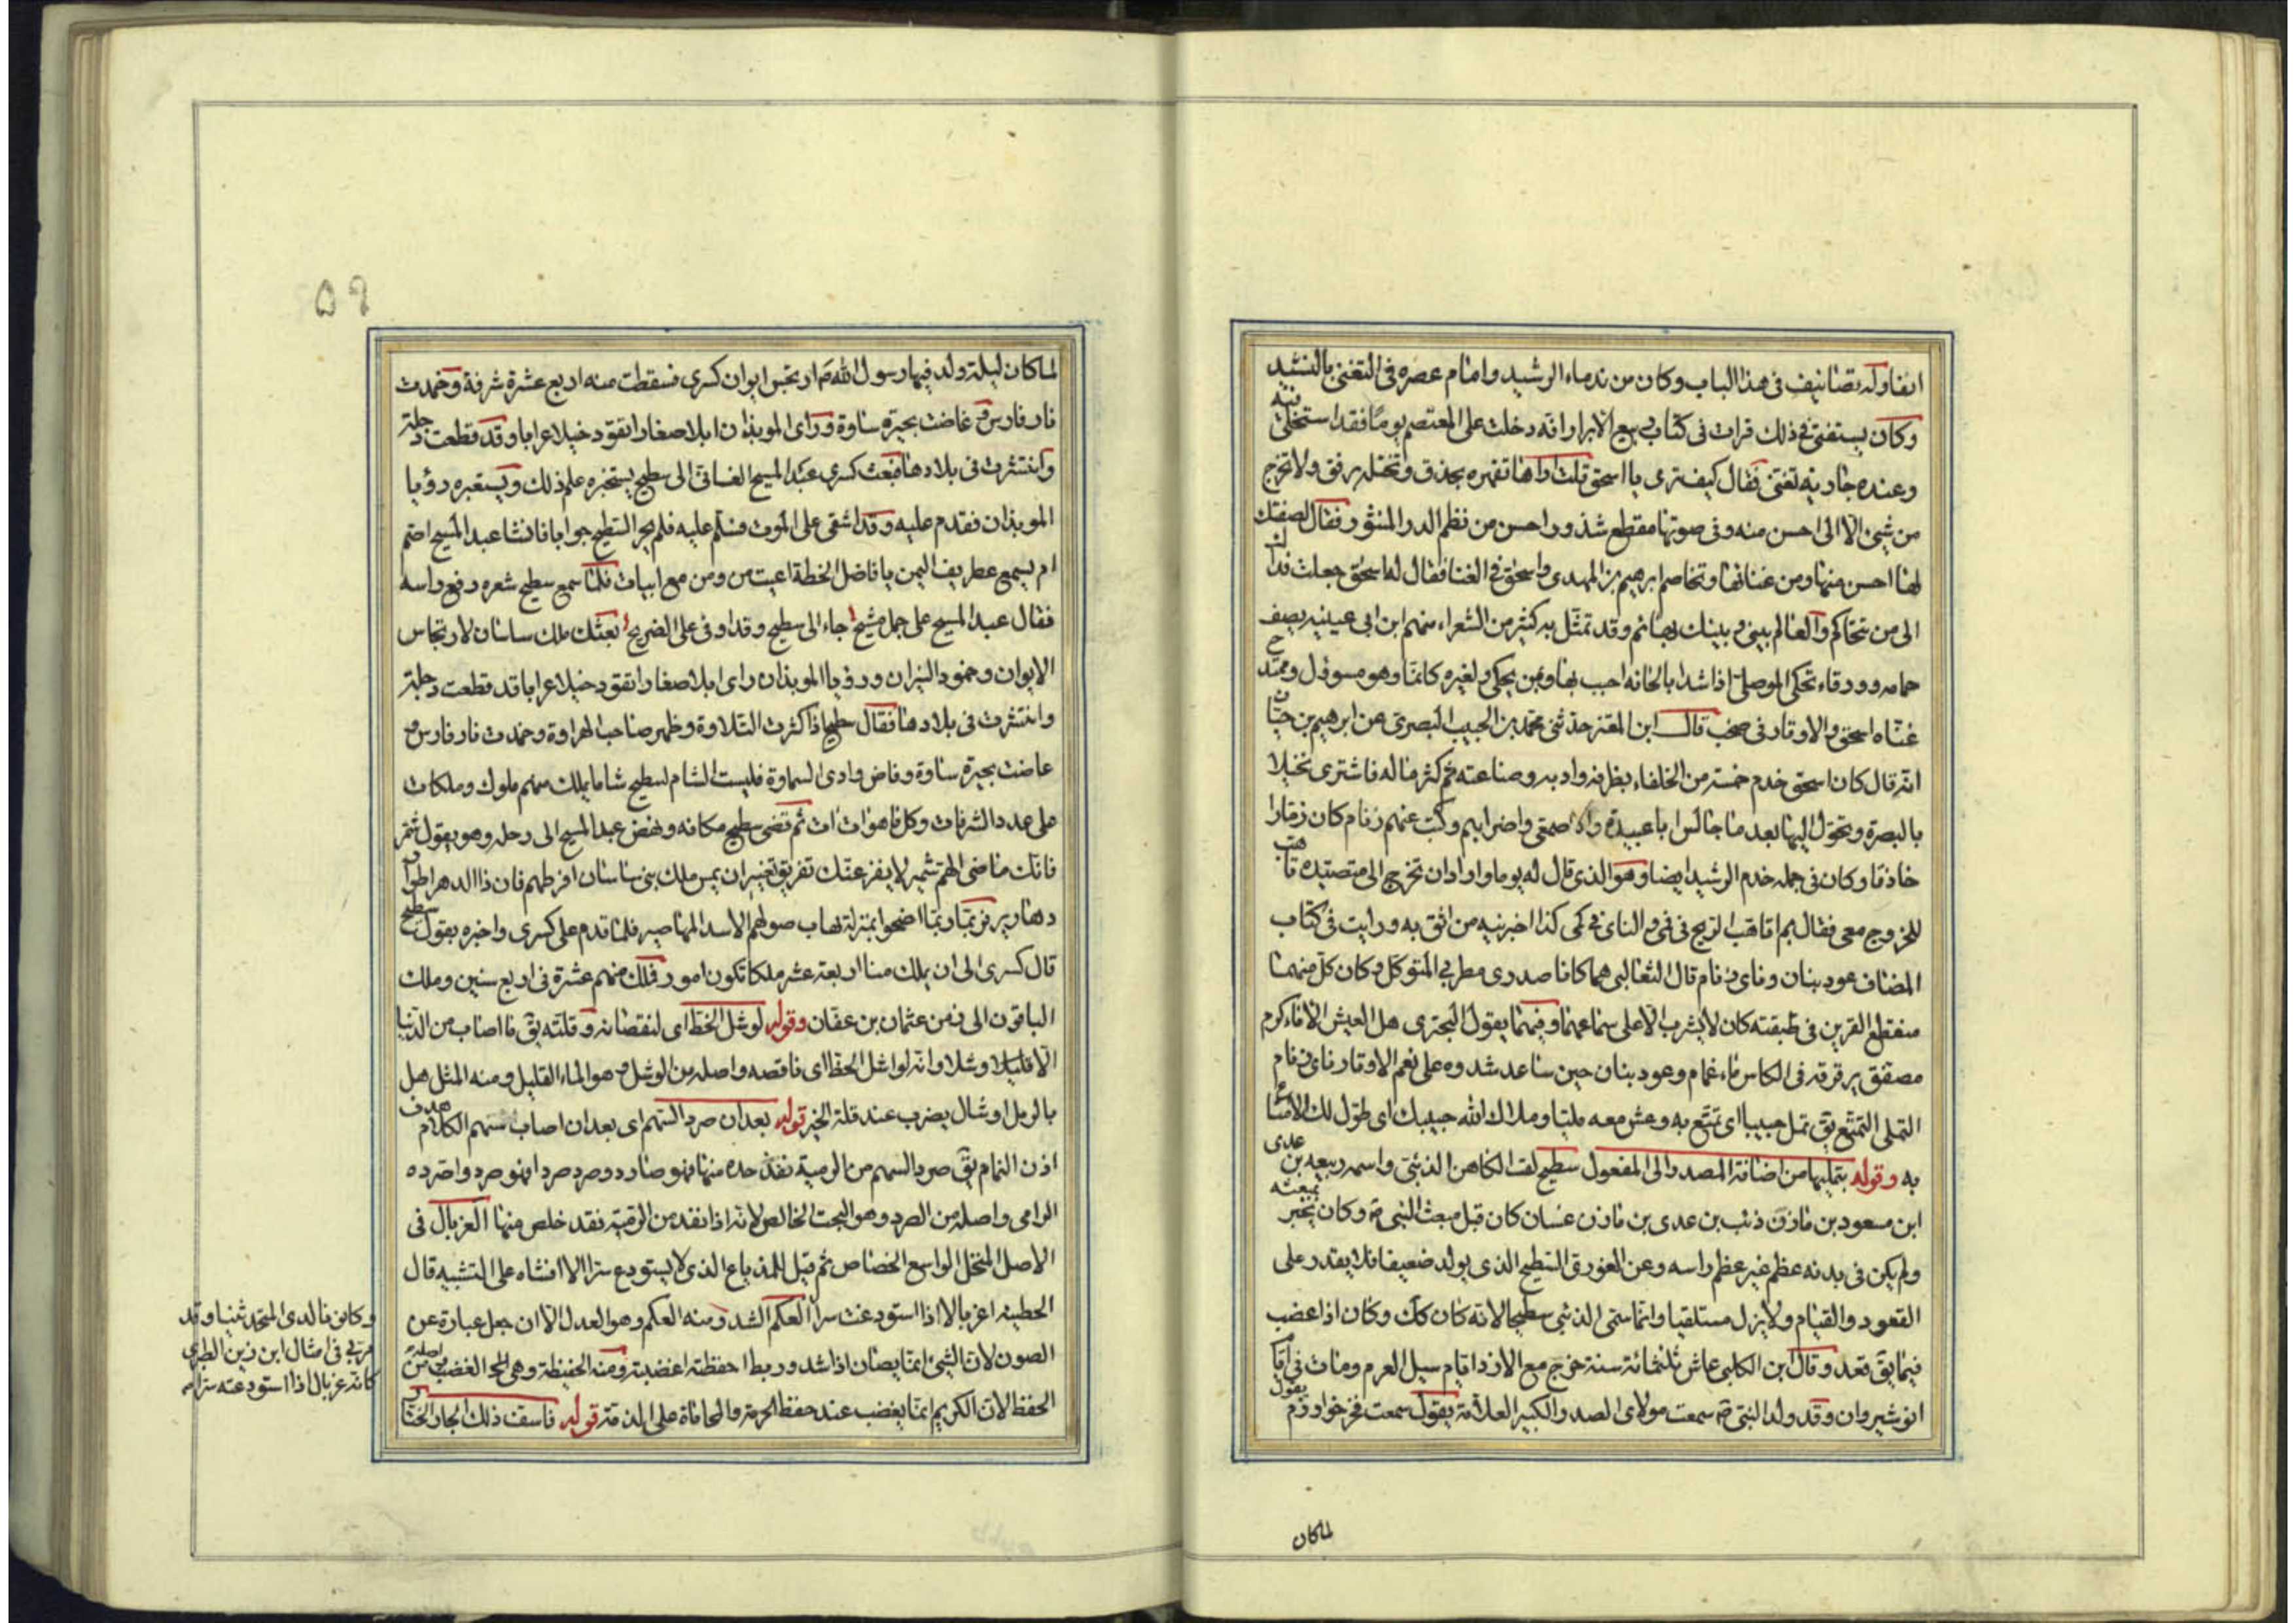 ايضا وله تصانيف فى هذا الباب وكان من ندماء الرشيد وامام عصره فى التغنى بالنشيد
وكان يستفتى فى ذلك قرات فى كتاب ربيع الابرار انه دخلت على المعتصم يوما فقد استخلى فيه
وعنده جارية تغنى فقال كيف ترى يا اسحق قلت اراها تقهره بحذق وتختله برفق ولا تخرج
من شئ الا الى احسن منه وفى صوتها مقطع شذور احسن من نظم الدر المنثور فقال لصفتك
لها احسن منها ومن غنائها وتخاصم ابرهيم بن المهدى واسحق فى الغنا فقال له اسحق جعلت فداك
الى من نتحاكم والعالم بينى وبينك بهائم وقد تمثل به كثير من الشعراء منهم ابن ابى عيينه يصف
حمامه وورقاء تحكى الموصلى اذا شدا بالحانه احبب بها وبمن يحكى ولغيره كانما وهو مسوفل ومجتدح
غناه اسحق والاوتار فى صخب قال ابن المعتز حدثنى محمد بن الحبيب البصرى عن ابرهيم بن حيان
انه قال كان اسحق خدم خمسة من الخلفاء بظرفه وادبه وصناعته ثم كثر ماله فاشترى نخيلا
بالبصرة وتحول اليها بعد ما جالس ابا عبيدة والاصمعى واضرابهم وكتب عنهم زنام كان زمارا
حاذقا وكان فى جمله خدم الرشيد ايضا وهو الذى قال له يوما واراد ان تخرج الى متصيده تاهب
للخروج معى فقال بم اتاهب الريح فى فمى والناى فى كمى كذا اخبرنيه من اثق به ورايت فى كتاب
المضاف عود بنان وناى زنام قال الثعالبى هما كانا صدرى مطربى المتوكل وكان كل منهما
منقطع القرين فى طبقته كان لا يشرب الا على سماعهما وفيهما يقول البحترى هل العيش الا ماء كرم
مصفق يرقرقه فى الكاس ماء غمام وعود بنان حين ساعد شدوه على نغم الاوتار ناى زنام
التملى التمتع يق تمل حبيبا اى تمتع به وعش معه مليا وملاك الله حبيبك اى طول لك الامتاع
به وقوله بتمليها من اضافة المصدر الى المفعول سطيح لقب الكاهن الذئبى واسمه ربيعه بن عدى
ابن مسعود بن مازن ذئب بن عدى بن مازن غسان كان قبل مبعث النبى ص وكان يخبر بمبعثه
ولم يكن فى بدنه عظم غير عظم راسه وعن الغورى السطيح الذى يولد ضعيفا فلا يقدر على
القعود والقيام ولا يزل مستلقيا وانما سمى الذئبى سطيحا لانه كان كك وكان اذا غضب
فيما يق قعد وقال ابن الكلبى عاش ثلثمائة سنة خرج مع الازد ايام سيل العرم ومات فى ايام
انوشيروان وقد ولد النبى ص سمعت مولاى الصدر الكبير العلامة يقول سمعت فخر خوارزم يقول
لما كان
٥٩
لما كان ليلة ولد فيها رسول الله ص ارتجس ايوان كسرى فسقطت منه اربع عشرة شرفة وخمدت
نار فارس وغاضت بحيرة ساوة وراى الموبذان ابلا صغارا تقود خيلا عرابا وقد قطعت دجلة
وانتثرت فى بلادها فبعث كسرى عبد المسيح الغسانى الى سطيح يستخبره علم ذلك ويستعبره رؤيا
الموبذان فقدم عليه وقد اشفى على الموت فسلم عليه فلم يحر السطيح جوابا فانشا عبد المسيح اصم
ام يسمع غطريف اليمن يا فاضل الخطة اعيت من ومن مع ابيات فلما سمع سطيح شعره رفع راسه
فقال عبد المسيح على جمل مشيح جاء الى سطيح وقد اوفى على الضريح بعثك ملك ساسان لارتجاس
الايوان وخمود النيران ورؤيا الموبذان راى ابلا صغارا تقود خيلا عرابا قد قطعت دجلة
وانتثرت فى بلادها فقال سطيح اذا كثرت التلاوة وظهر صاحب الهراوة وخمدت نار فارس و
غاضت بحيرة ساوة وفاض وادى السماوة فليست الشام لسطيح شاما يملك منهم ملوك وملكات
على عدد الشرفات وكل ما هو ات ات ثم قضى سطيح مكانه ونهض عبد المسيح الى رحله وهو يقول شمر
فانك ماضى الهم شمير لا يفزعنك تفريق وتغيير ان يمس ملك بنى ساسان افرطهم فان ذا الدهر اطوار
دهارير فربما ربما اضحوا بمنزلة تهاب صولهم الاسد المهاصير فلما قدم على كسرى واخبره بقول سطيح
قال كسرى الى ان يملك منا اربعة عشر ملكا تكون امور فملك منهم عشرة فى اربع سنين وملك
الباقون الى زمن عثمان بن عفان وقوله لوشل الحظ اى لنقصانه وقلته يق ما اصاب من الدنيا
الا قليلا وشلا وانه لواشل الحظ اى ناقصه واصله من الوشل وهو الماء القليل ومنه المثل هل
بالرمل اوشال يضرب عند قلة الخير قوله بعد ان صرد السهم اى بعد ان اصاب سهم الكلام هدف
اذن النمام يق صرد السهم من الرمية نفذ حده منها فهو صارد وصرد صردا فهو صرد واصرده
الرامى واصله من الصرد وهو البحت الخالص لانه اذا نفذ من الرمية فقد خلص منها الغربال فى
الاصل المنخل الواسع الخصاص ثم قيل للمذياع الذى لا يستودع سرا الا افشاه على التشبيه قال
الحطيئه اغربالا اذا استودعت سرا العكم الشد ومنه العكم وهو العدل الا ان جعل عبارة عن
الصون لان الشئ انما يصان اذا شد وربط احفظته اغضبته ومنه الحفيظة وهى الغضب اصله من
الحفظ لان الكريم انما يغضب عند حفظ الحرمة والمحاماة على الذمة قوله فاسف ذلك الجار الختار
وكانما لدى المتحدثينا وقد
مر بى فى امثال ابن زين الطبرى
كانه غربال اذا استودعته سرا